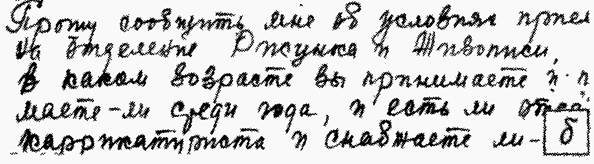 Прошу сообщить мне об условиях прием
на отделение Рисунка и Живописи,
в каком возрасте вы принимаете и п
маете-ли среди года, и есть ли отдел
карикатуриста и снабжаете ли-
б